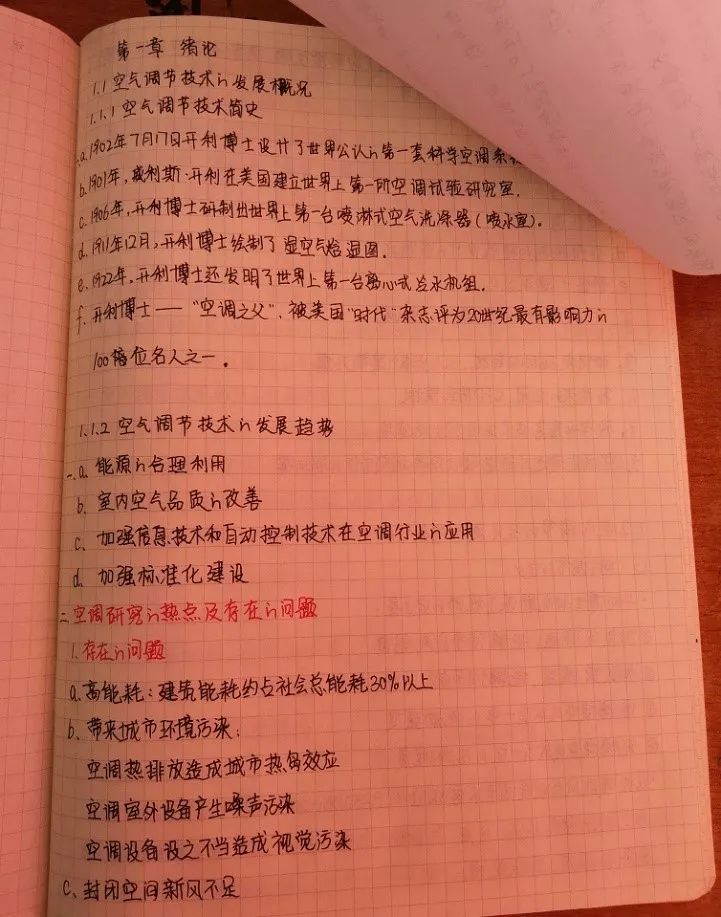 第一章 绪论
1.1 空气调节技术的发展概况
1.1.1 空气调节技术简史
a. 1902年7月17日开利博士设计了世界公认的第一套科学空调系
b. 1901年,威利斯·开利在美国建立世界上第一所空调试验研究室.
c. 1906年,开利博士研制出世界上第一台喷淋式空气洗涤器(喷水室).
d. 1911年12月,开利博士绘制了湿空气焓湿图.
e. 1922年,开利博士还发明了世界上第一台离心式冷水机组.
f. 开利博士——“空调之父”,被美国“时代”杂志评为20世纪最有影响力的
100位名人之一.
1.1.2 空气调节技术的发展趋势
一.a. 能源的合理利用
b. 室内空气品质的改善
c. 加强信息技术和自动控制技术在空调行业的应用
d. 加强标准化建设
二.空调研究的热点及存在的问题
1.存在的问题
a. 高能耗:建筑能耗约占社会总能耗30%以上
b. 带来城市环境污染:
空调热排放造成城市热岛效应
空调室外设备产生噪声污染
空调设备设之不当造成视觉污染
c. 封闭空间新风不足